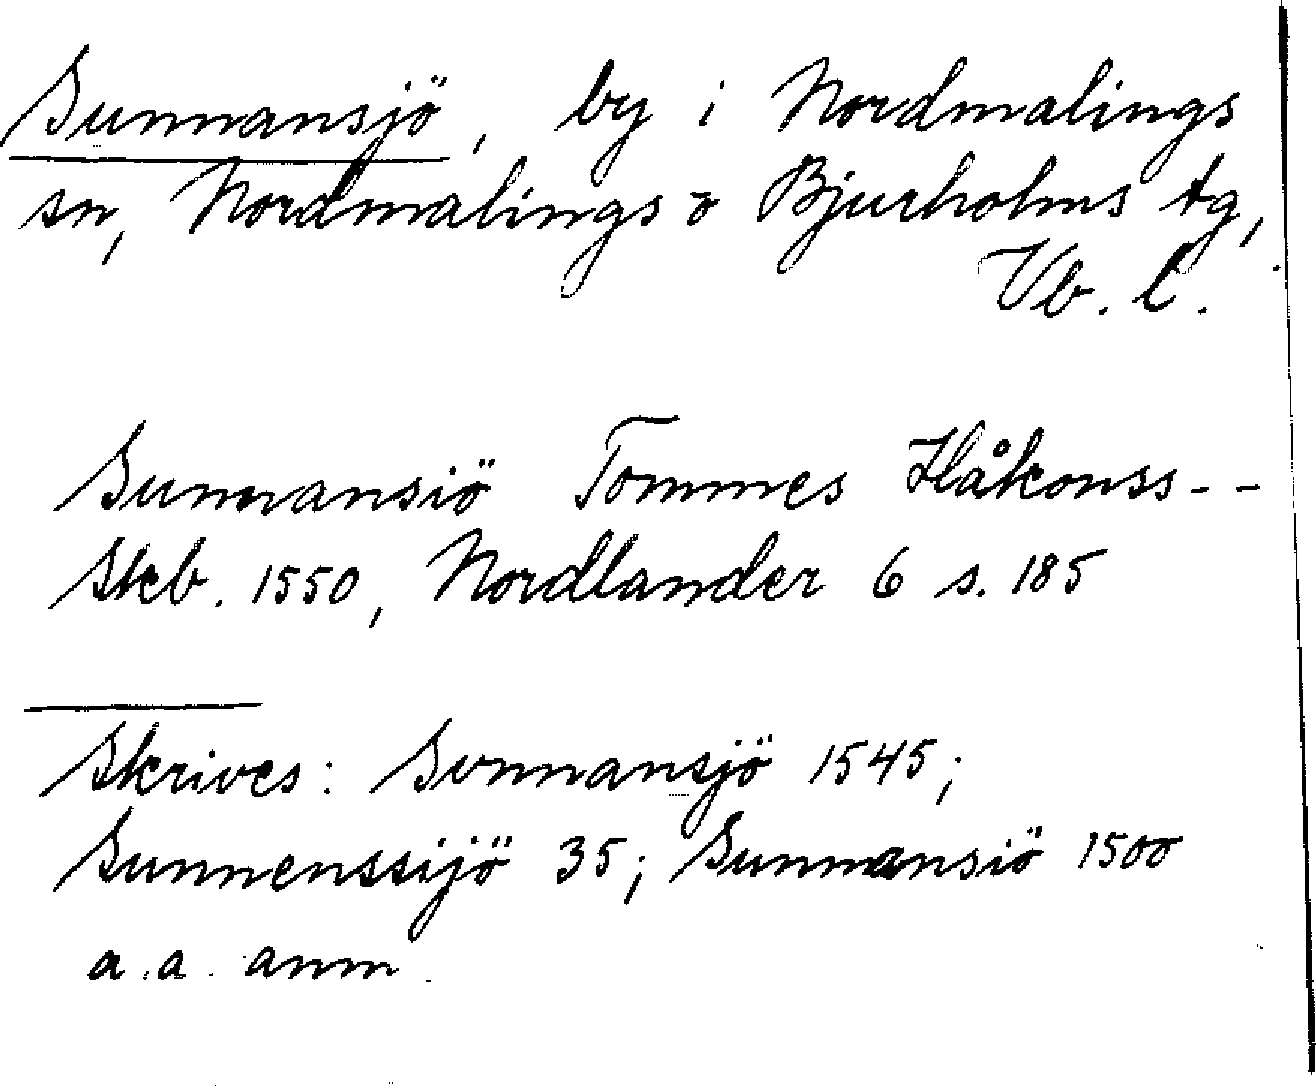 Sunnansjö, by i Nordmalings
sn, Nordmalings o Bjurholms tg,
Vb. l.
Sunnansiö Tommes Håkonss--
Skb. 1550, Nordlander 6 s. 185
Skrives: Sonnansjö 1545;
Sunnenssijö 35; Sunnansiö 1500
a.a. anm.